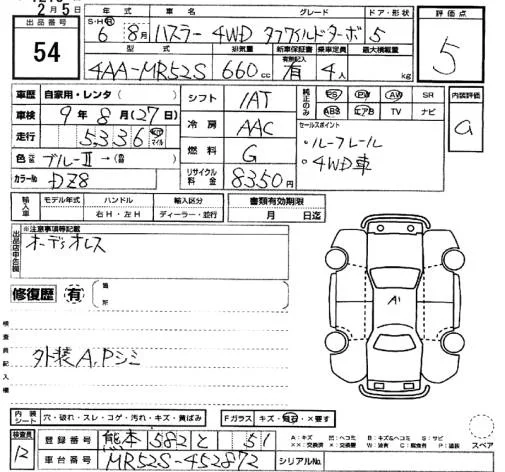 2月5日
出品番号
54
S・H 年式 車名 グレード ドア・形状 評価点
6年 8月 ハスラー 4WD タフワイルドターボ 5
型式 排気量 新車保証書 乗車定員 最大積載量
4AA-MR52S 660cc 有無記入 有 4人 kg
5
車歴 自家用・レンタ( )
車検 9年8月(27日)
走行 5,336 km マイル
色 ブルーⅡ→(色替)
カラーNo DZ8
シフト IAT
冷房 AAC
燃料 G
リサイクル料金 8350円
純正のみ PS PW AW SR
ABS エアB TV ナビ
セールスポイント
・ルーフレール
・4WD車
内装評価
a
輸入車 モデル年式 ハンドル 輸入区分 書類有効期限
年 右H・左H ディーラー・並行 月 日迄
出品店申告欄 ※注意事項等記載
オーディオレス
修復歴 有 箇所
検査員記入欄
外装A,Pシミ
A1
内装シート 穴・破れ・スレ・コゲ・汚れ・キズ・黄ばみ Fガラス キズ・飛石・×要す
検査員
登録番号 熊本 582 と 51
車台番号 MR52S-452872 シリアルNo.
A:キズ 凹:ヘコミ B:キズ&ヘコミ S:サビ
××:交換済 ×:交換要 W:波有 C:腐食有 P:塗装
スペア